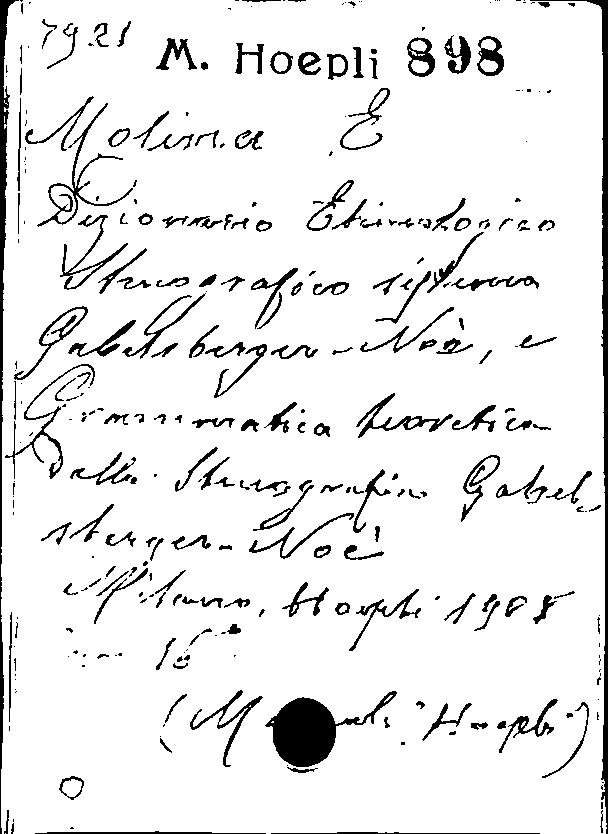 7921 M. Hoepli 898
Molina E
Dizionario Etimologico
Stenografico sistema
Gabelsberger-Noè, e
Grammatica teoretica
della Stenografia Gabel-
sberger-Noè
Milano, Hoepli 1908
in 16°
(Manuali "Hoepli")